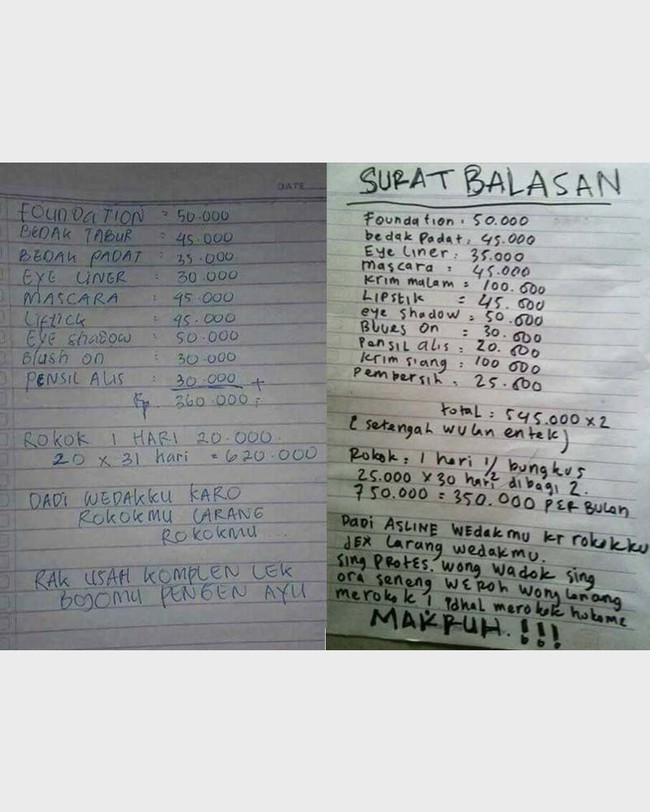 DATE
FOUNDATION = 50.000
BEDAK TABUR : 45.000
BEDAK PADAT : 35.000
EYE LINER : 30.000
MASCARA : 45.000
Liftick : 45.000
EYE shadow : 50.000
Blush on : 30.000
PENSIL ALIS : 30.000 +
Rp. 360.000:
ROKOK 1 HARI 20.000.
20 x 31 hari = 620.000
DADI WEDAKKU KARO
ROKOKMU LARANG
ROKOKMU...
RAK USAH KOMPLEN LEK
BOJOMU PENGEN AYU
SURAT BALASAN
Foundation : 50.000
bedak Padat : 45.000
Eye liner : 35.000
mascara : 45.000
Krim malam = 100.000
Lipstik = 45.000
eye shadow = 50.000
Blues on = 30.000
Pensil alis : 20.000
Krim siang : 100 000
Pembersih : 25.000
total : 545.000 x 2
( setengah wulan entek )
Rokok : 1 hari 1/2 bungkus
25.000 x 30 hari dibagi 2.
750.000 = 350.000 PER BULAN
Dadi ASLINE WEDAKMU kr rokokku
JEX larang wedakmu.
sing PROTES. wong wadok sing
ora seneng WEROH wong lanang
merokok ! idhal merokok hukome
MAKRUH.!!!